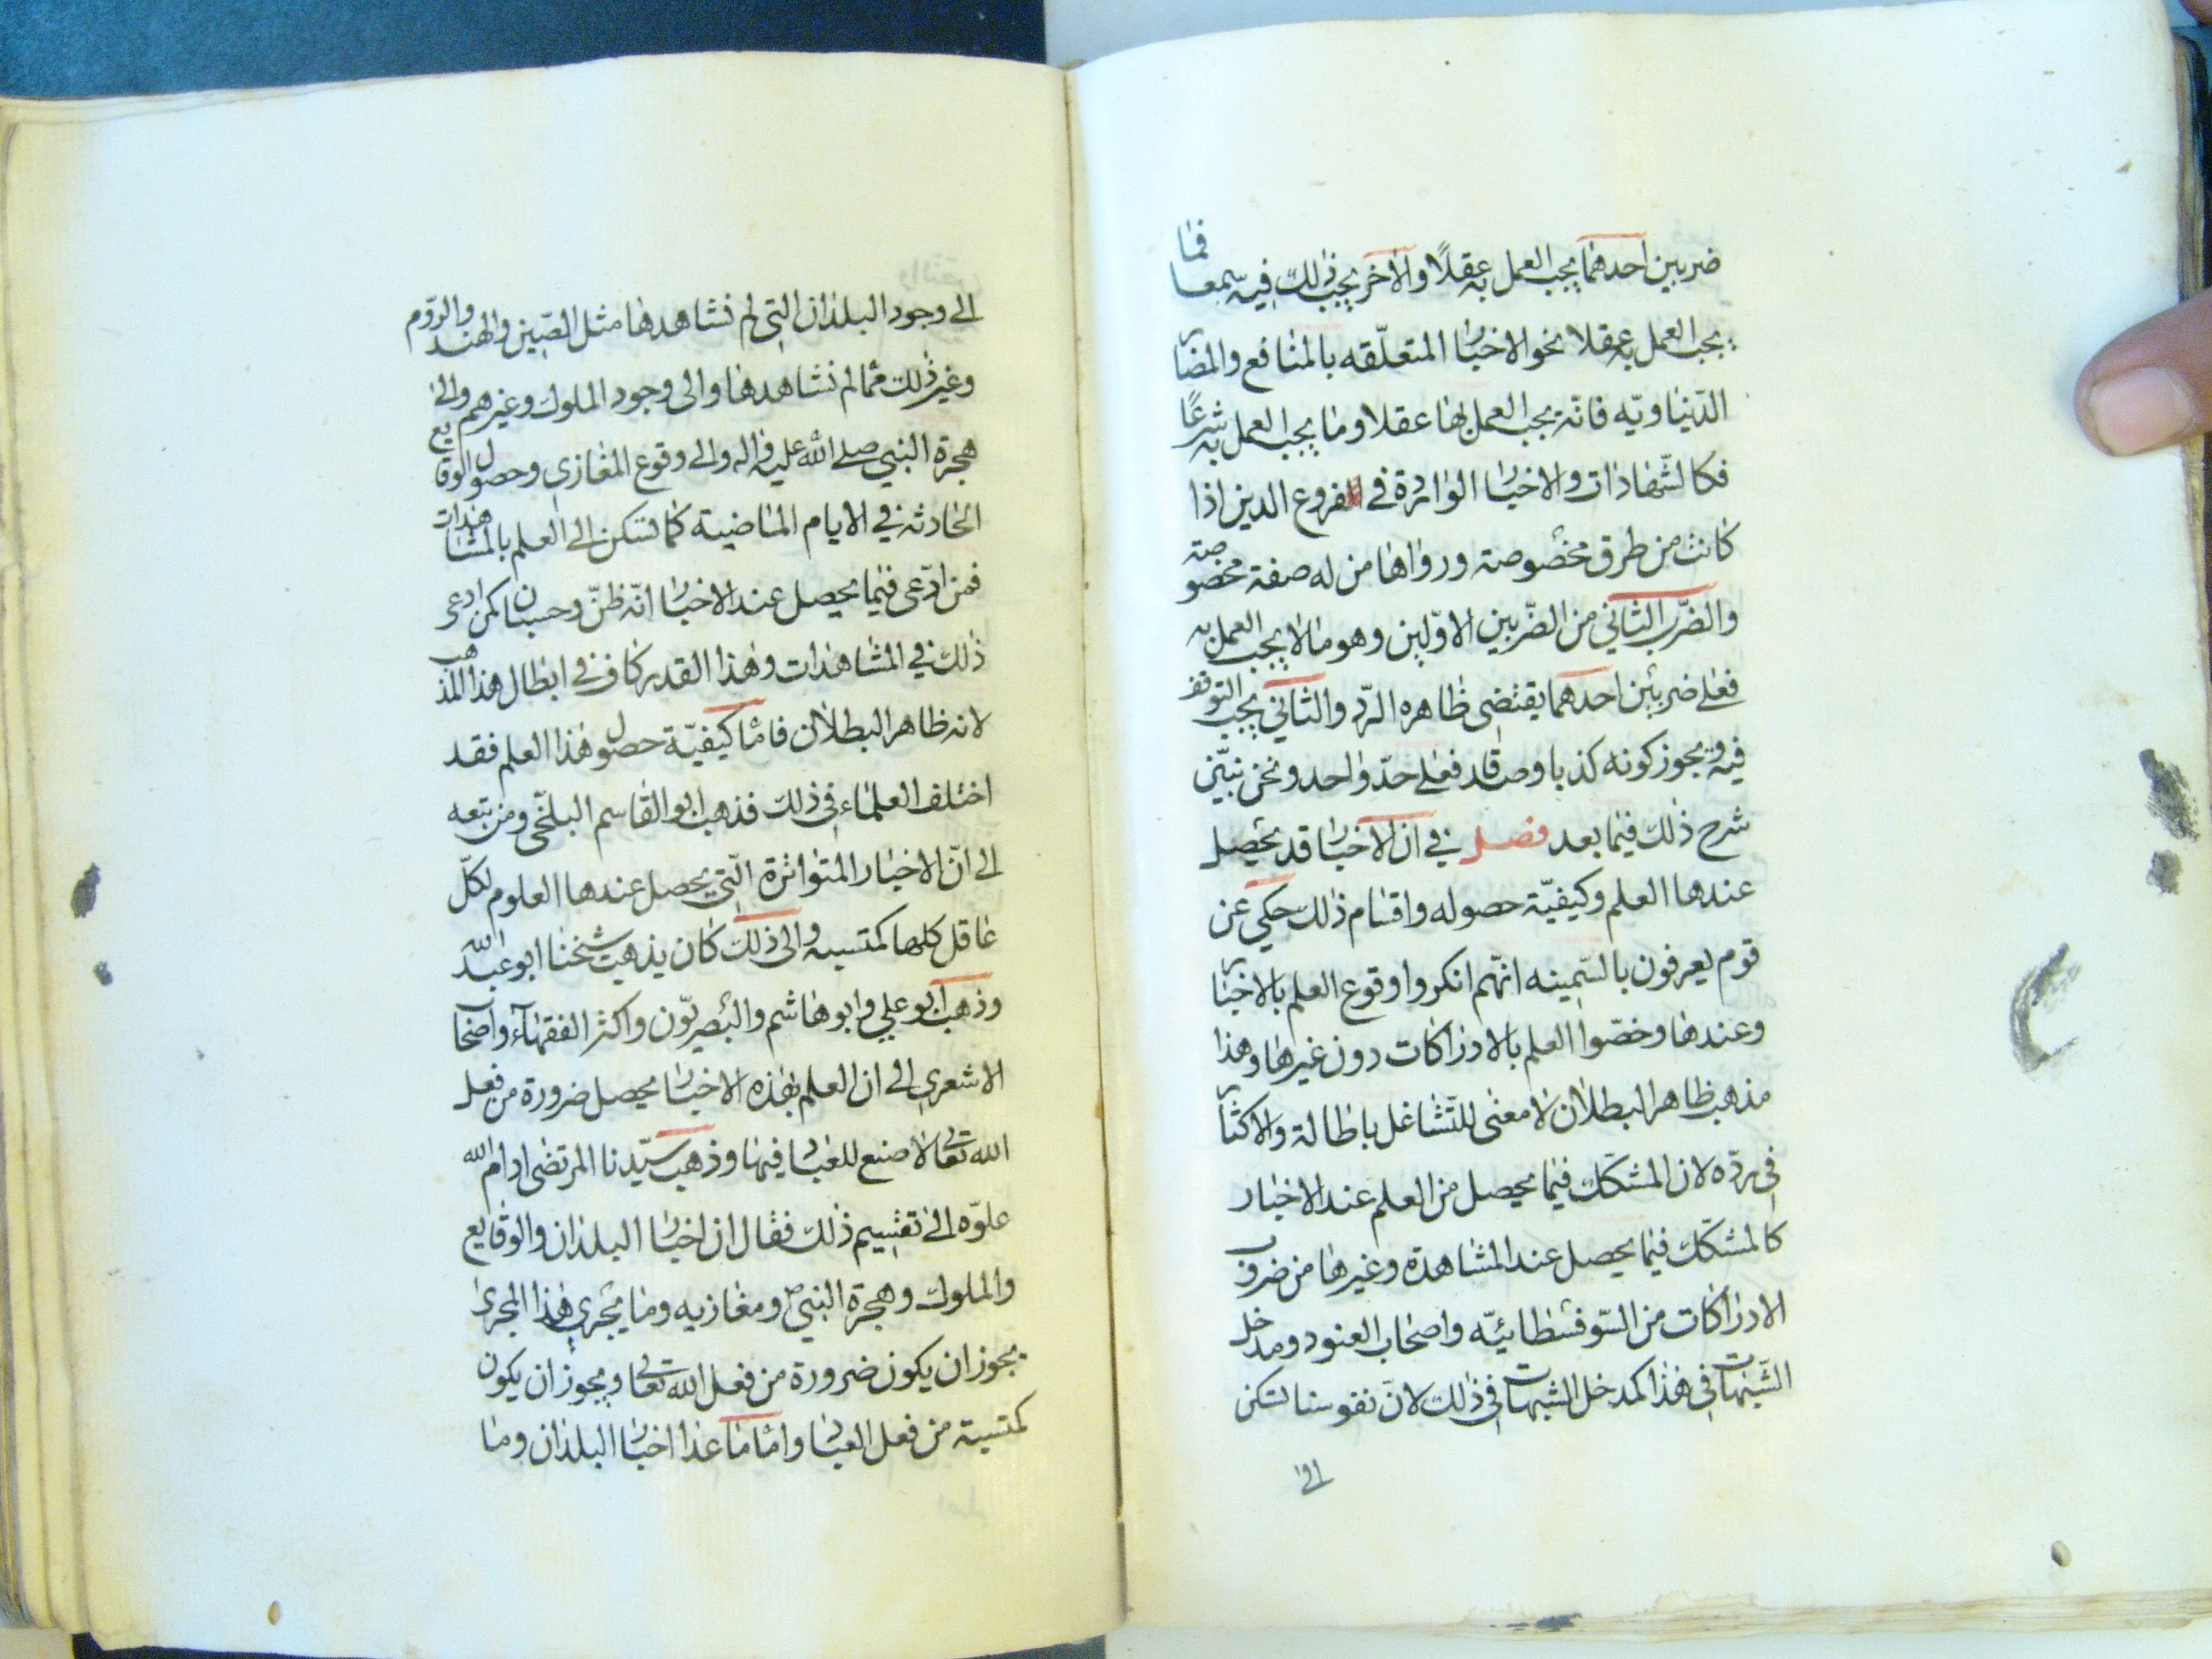 ضربين احدهما يجب العمل به عقلاً والاخر يجب ذلك فيه سمعا فما
يجب العمل به عقلا نحو الاخبار المتعلّقه بالمنافع والمضار
الدّنياويّه فانّه يجب العمل بها عقلا وما يجب العمل به شرعًا
فكالشّهادات والاخبار الواردة في فروع الدين اذا
كانت من طرق مخصوصة ورواها من له صفة مخصوصة
والضّرب الثاني من الضّربين الاوّلين وهو ما لا يجب العمل به
فعلى ضربين احدهما يقتضى ظاهره الردّ والثاني يجب التوقف
فيه ويجوز كونه كذبا وصدقا فعلى حدّ واحد ونحن نبيّن
شرح ذلك فيما بعد فصل في ان الاخبار قد يحصل
عندها العلم وكيفيّة حصوله واقسام ذلك حكي عن
قوم يعرفون بالسّمينه انهّم انكروا وقوع العلم بالاخبار
وعندها وخصّوا العلم بالادراكات دون غيرها وهذا
مذهب ظاهر البطلان لا معنى للتّشاغل باطالة والاكثار
في ردّه لان المشكّك فيما يحصل من العلم عند الاخبار
كالمشكّك فيما يحصل عند المشاهدة وغيرها من ضروب
الادراكات من السّوفسطائيّه واصحاب العنود ومدخل
الشّبهات في هذا كمدخل الشبهات في ذلك لانّ نفوسنا تسكن
الى
الى وجود البلدان التي لم نشاهدها مثل الصّين والهند والرّوم
وغير ذلك ممّا لم نشاهدها والى وجود الملوك وغيرهم والى
هجرة النبي صلى الله عليه واله والى وقوع المغازي وحصول الوقايع
الحادثه في الايام الماضية كما تسكن الى العلم بالمشاهدات
فمن ادّعى فيما يحصل عند الاخبار انّه ظنّ وحسبان كمن ادعى
ذلك في المشاهدات وهذا القدر كاف في ابطال هذا المذهب
لانه ظاهر البطلان فامّا كيفيّة حصول هذا العلم فقد
اختلف العلماء في ذلك فذهب ابو القاسم البلخي ومن تبعه
الى انّ الاخبار المتواترة التّي يحصل عندها العلوم لكلّ
عاقل كلها كمتسبه والى ذلك كان يذهب شيخنا ابو عبد الله
وذهب ابو علي وابو هاشم والبصريّون واكثر الفقهاء واصحاب
الاشعري الى ان العلم بهذه الاخبار يحصل ضرورة من فعل
الله تعالى لا صنع للعباد فيها وذهب سيّدنا المرتضى ادام الله
علوّه الى تقسيم ذلك فقال ان اخبار البلدان والوقايع
والملوك وهجرة النبيّ ص ومغازيه وما يجري هذا المجرى
يجوز ان يكون ضرورة من فعل الله تعالى ويجوز ان يكون
كمتسبة من فعل العباد وامّا ما عدا اخبار البلدان وما